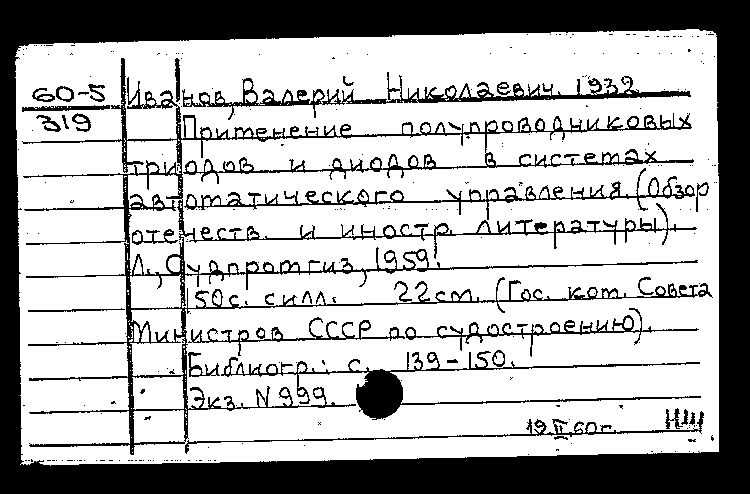 60-5 Иванов, Валерий Николаевич. 1932
319 Применение полупроводниковых
триодов и диодов в системах
автоматического управления. (Обзор
отечеств. и иностр. литературы).
Л., Судпромгиз, 1959.
50с. силл. 22см. (Гос. ком. Совета
Министров СССР по судостроению).
Библиогр.: с. 139-150.
Экз. N 999.
19 II 60г. НШ